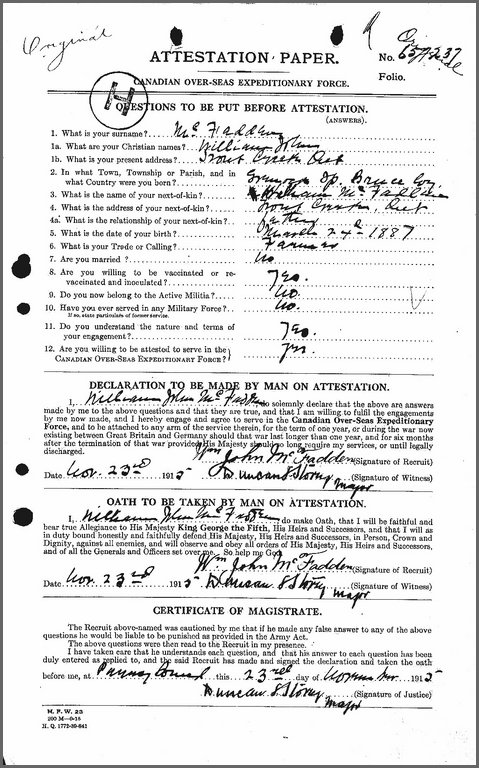 Original
ATTESTATION PAPER.
No. 657237
Folio.
CANADIAN OVER-SEAS EXPEDITIONARY FORCE.
H
QUESTIONS TO BE PUT BEFORE ATTESTATION.
(ANSWERS).
1. What is your surname? McFadden
1a. What are your Christian names? William John
1b. What is your present address? Trout Creek Ont
2. In what Town, Township or Parish, and in
what Country were you born? Tp. Bruce Co.
3. What is the name of your next-of-kin? William McFadden
4. What is the address of your next-of-kin? Ont
4a. What is the relationship of your next-of-kin? Father
5. What is the date of your birth? March 24th 1887
6. What is your Trade or Calling? Farmer
7. Are you married? No
8. Are you willing to be vaccinated or re-
vaccinated and inoculated? Yes.
9. Do you now belong to the Active Militia? No.
10. Have you ever served in any Military Force? No.
If so, state particulars of former service.
11. Do you understand the nature and terms of
your engagement? Yes.
12. Are you willing to be attested to serve in the
CANADIAN OVER-SEAS EXPEDITIONARY FORCE? Yes.
DECLARATION TO BE MADE BY MAN ON ATTESTATION.
I, William John McFadden do solemnly declare that the above are answers
made by me to the above questions and that they are true, and that I am willing to fulfil the engagements
by me now made, and I hereby engage and agree to serve in the Canadian Over-Seas Expeditionary
Force, and to be attached to any arm of the service therein, for the term of one year, or during the war now
existing between Great Britain and Germany should that war last longer than one year, and for six months
after the termination of that war provided His Majesty should so long require my services, or until legally
discharged.
Wm John McFadden (Signature of Recruit)
Date Nov. 23rd 1915 Duncan S Storey Major (Signature of Witness)
OATH TO BE TAKEN BY MAN ON ATTESTATION.
I, William John McFadden do make Oath, that I will be faithful and
bear true Allegiance to His Majesty King George the Fifth, His Heirs and Successors, and that I will as
in duty bound honestly and faithfully defend His Majesty, His Heirs and Successors, in Person, Crown and
Dignity, against all enemies, and will observe and obey all orders of His Majesty, His Heirs and Successors,
and of all the Generals and Officers set over me. So help me God.
Wm. John McFadden (Signature of Recruit)
Date Nov. 23rd 1915 Duncan S Storey Major (Signature of Witness)
CERTIFICATE OF MAGISTRATE.
The Recruit above-named was cautioned by me that if he made any false answer to any of the above
questions he would be liable to be punished as provided in the Army Act.
The above questions were then read to the Recruit in my presence.
I have taken care that he understands each question, and that his answer to each question has been
duly entered as replied to, and the said Recruit has made and signed the declaration and taken the oath
before me, at Parry Sound this 23rd day of November 1915
Duncan S Storey Major (Signature of Justice)
M. F. W. 23
200 M-9-15
H. Q. 1772-39-841